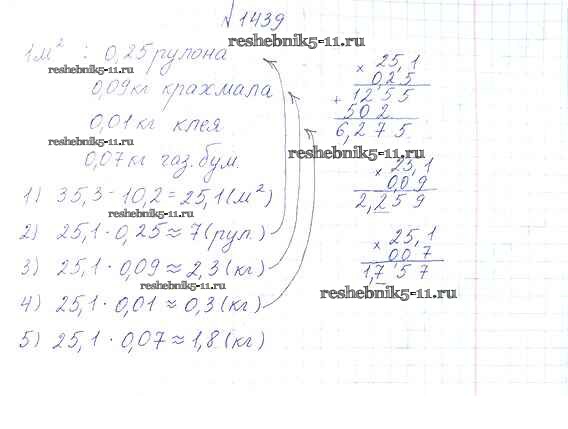 №1439
reshebnik5-11.ru
1м² : 0,25 рулона
reshebnik5-11.ru
0,09 кг крахмала
0,01 кг клея
reshebnik5-11.ru
0,07 кг газ. бум.
1) 35,3 - 10,2 = 25,1 (м²)
reshebnik5-11.ru
2) 25,1 · 0,25 ≈ 7 (рул.)
3) 25,1 · 0,09 ≈ 2,3 (кг)
4) 25,1 · 0,01 ≈ 0,3 (кг)
5) 25,1 · 0,07 ≈ 1,8 (кг)
× 25,1
0,25
+ 1255
502
6,275
reshebnik5-11.ru
× 25,1
0,09
2,259
× 25,1
0,07
1,757
reshebnik5-11.ru